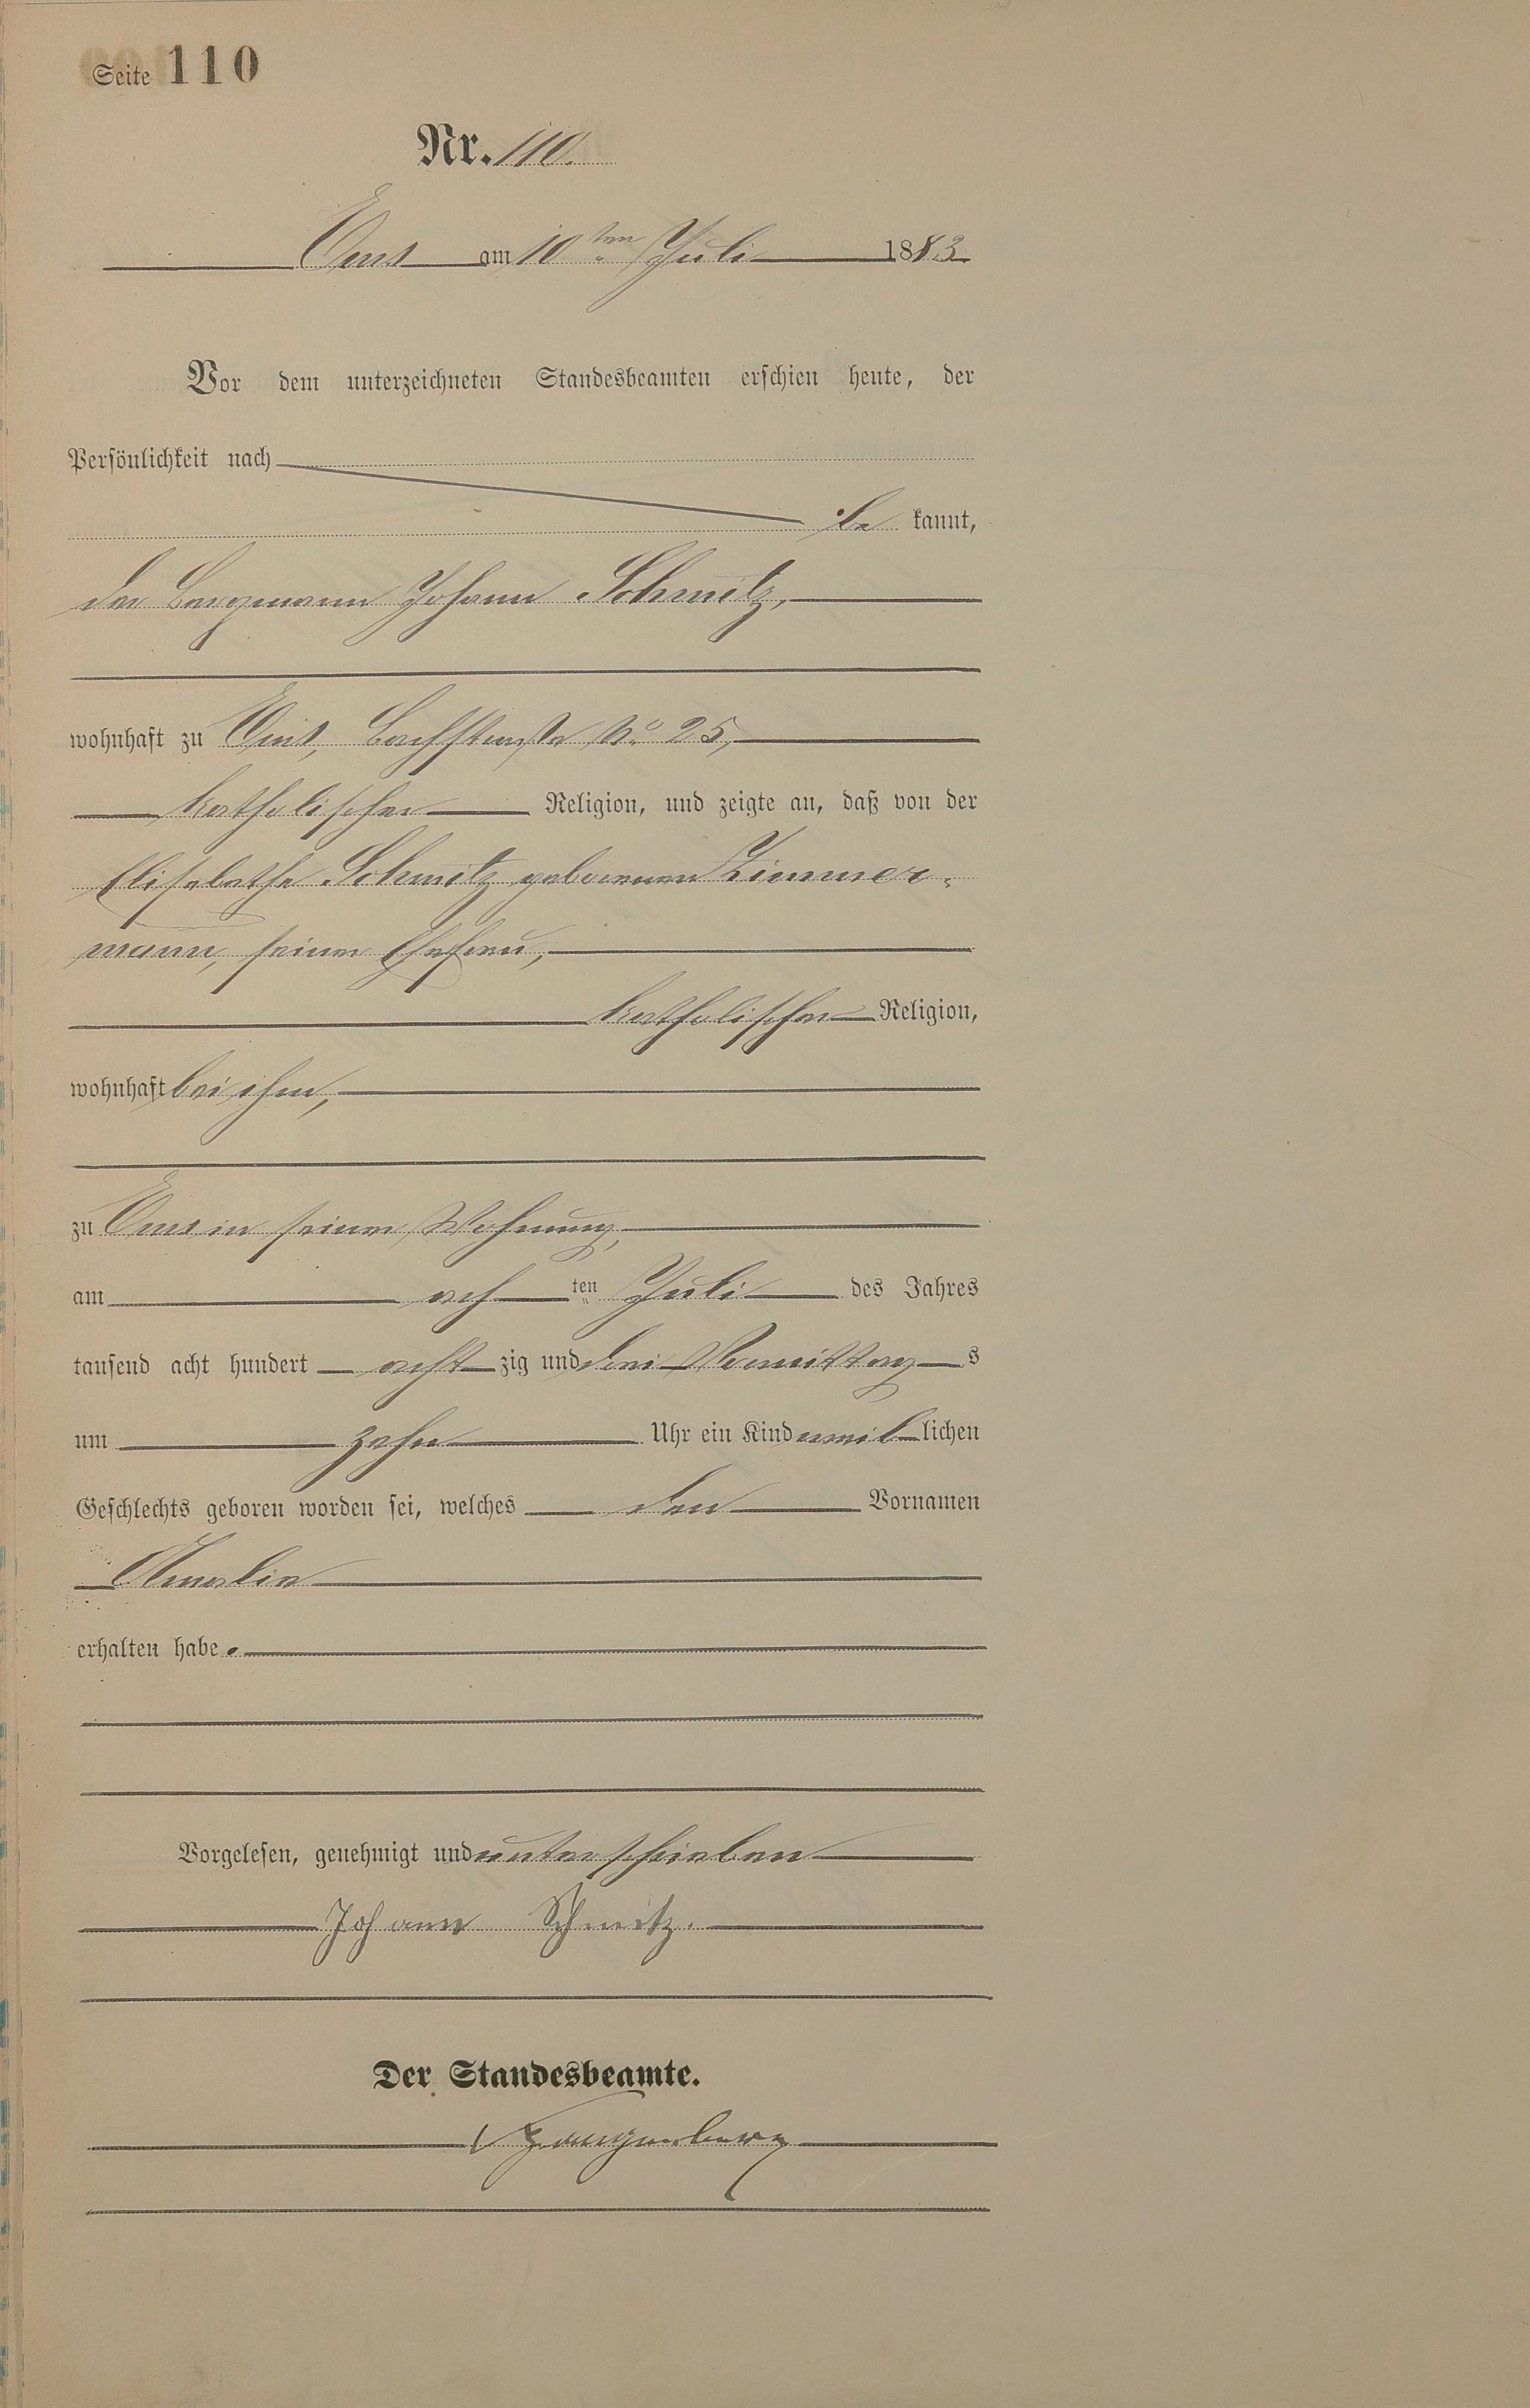 Seite 110
Nr. 110.
Ems am 10ten Juli 1883.
Vor dem unterzeichneten Standesbeamten erschien heute, der
Persönlichkeit nach
be kannt,
der Bergmann Johann Schmitz,
wohnhaft zu Ems, Bachstraße No 25,
katholischer Religion, und zeigte an, daß von der
Elisabetha Schmitz geborenen Zimmer-
mann, seiner Ehefrau,
katholischer Religion,
wohnhaft bei ihm,
zu Ems in seiner Wohnung,
am ach ten Juli des Jahres
tausend acht hundert acht zig und drei Vormittag s
um zehn Uhr ein Kind weib lichen
Geschlechts geboren worden sei, welches den Vornamen
Amalie
erhalten habe.
Vorgelesen, genehmigt und unterschrieben
Johann Schmitz.
Der Standesbeamte.